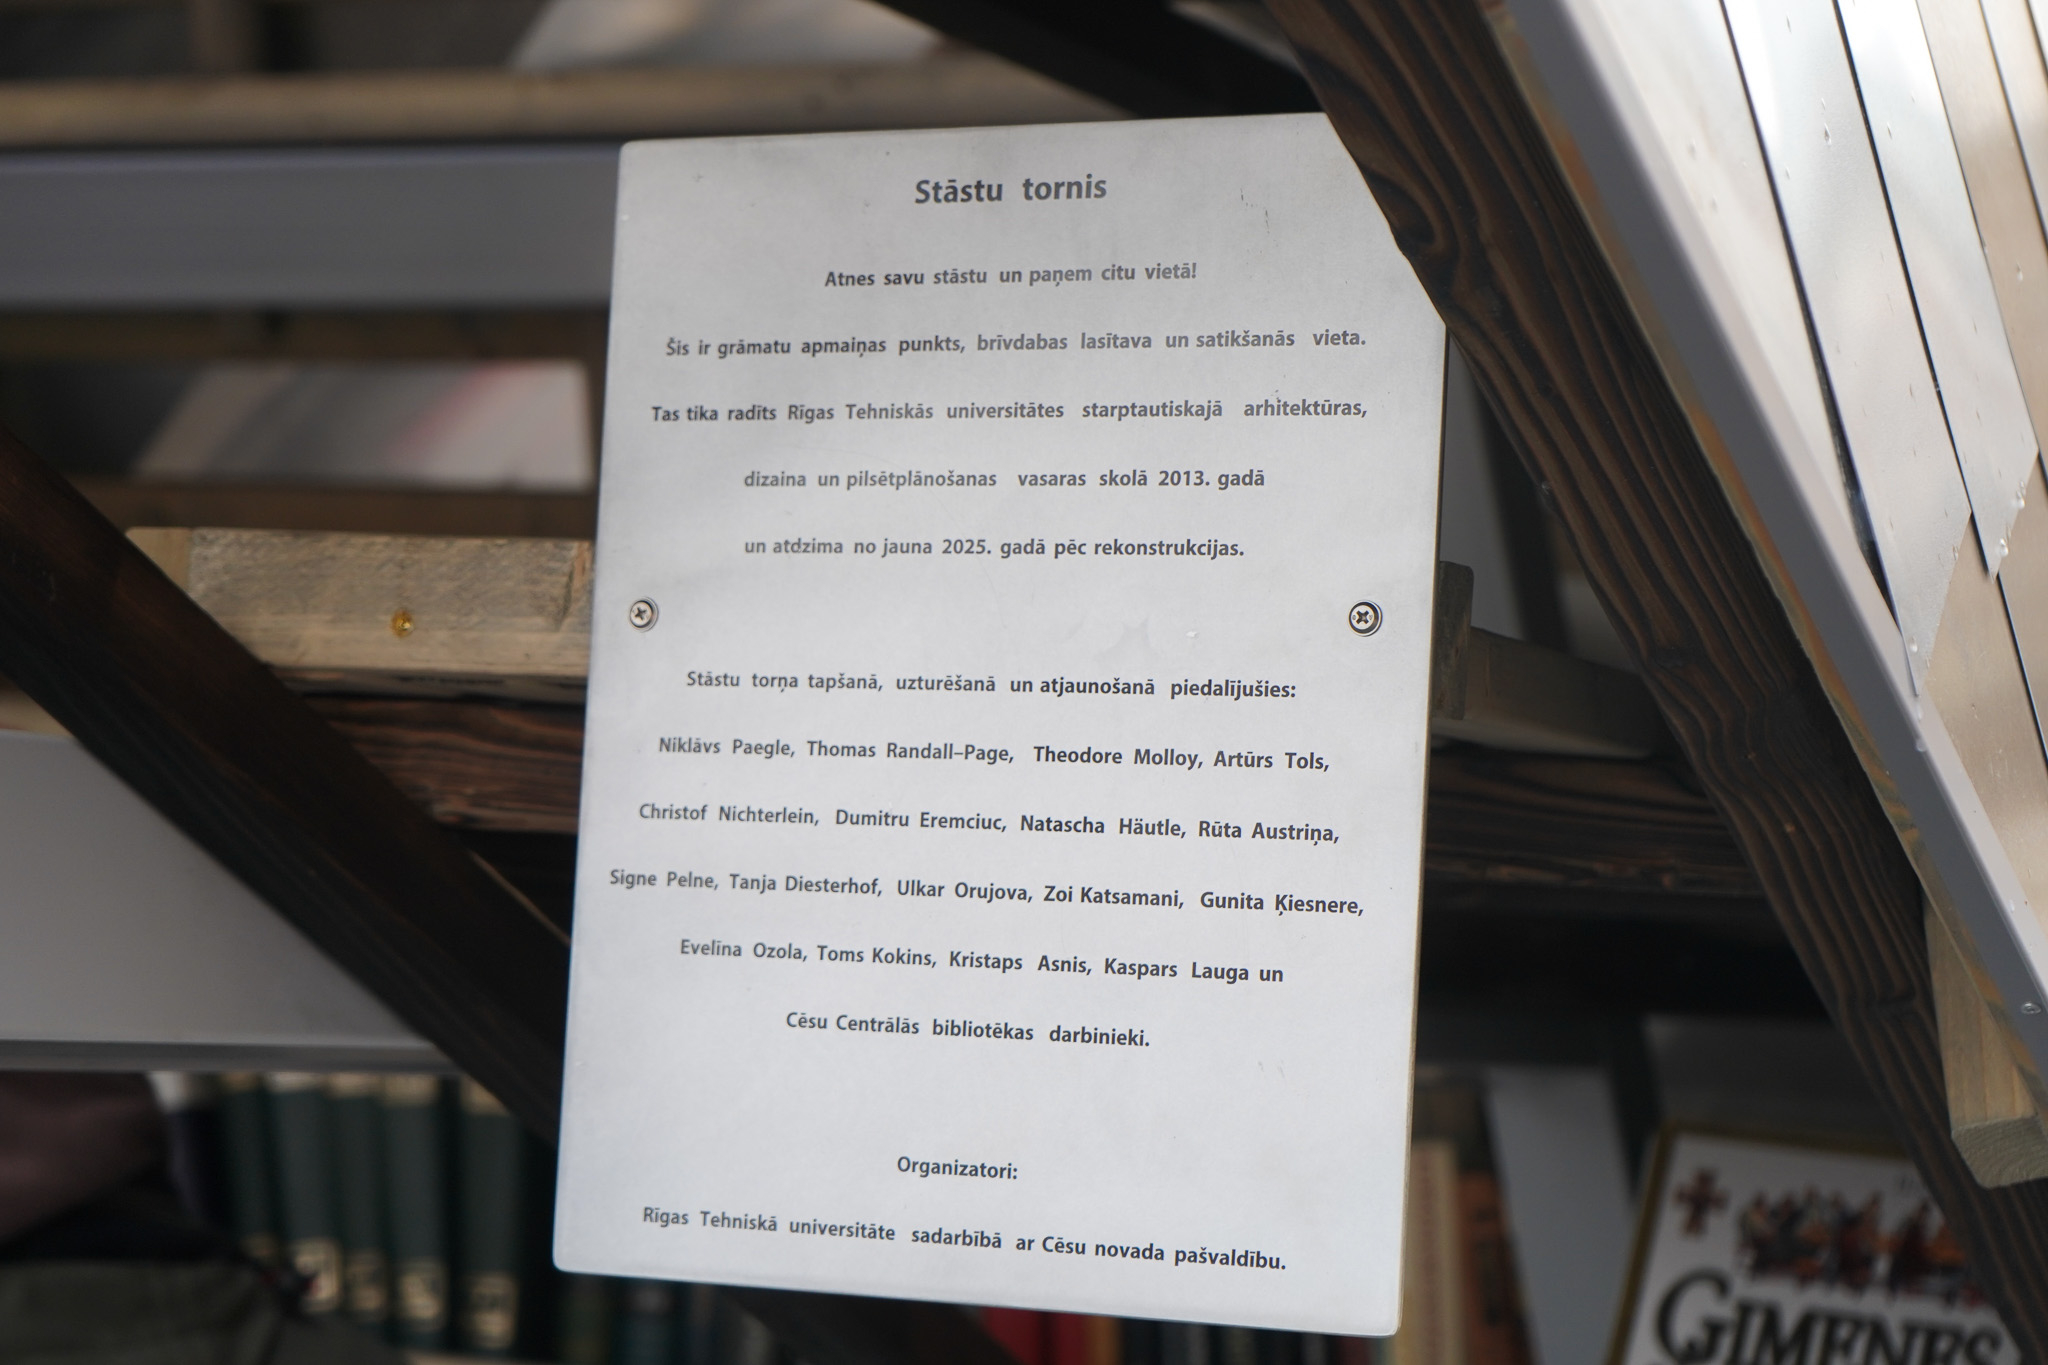 Stāstu tornis
Atnes savu stāstu un paņem citu vietā!
Šis ir grāmatu apmaiņas punkts, brīvdabas lasītava un satikšanās vieta.
Tas tika radīts Rīgas Tehniskās universitātes starptautiskajā arhitektūras,
dizaina un pilsētplānošanas vasaras skolā 2013. gadā
un atdzima no jauna 2025. gadā pēc rekonstrukcijas.
Stāstu torņa tapšanā, uzturēšanā un atjaunošanā piedalījušies:
Niklāvs Paegle, Thomas Randall–Page, Theodore Molloy, Artūrs Tols,
Christof Nichterlein, Dumitru Eremciuc, Natascha Häutle, Rūta Austriņa,
Signe Pelne, Tanja Diesterhof, Ulkar Orujova, Zoi Katsamani, Gunita Ķiesnere,
Evelīna Ozola, Toms Kokins, Kristaps Asnis, Kaspars Lauga un
Cēsu Centrālās bibliotēkas darbinieki.
Organizatori:
Rīgas Tehniskā universitāte sadarbībā ar Cēsu novada pašvaldību.
GIMENES